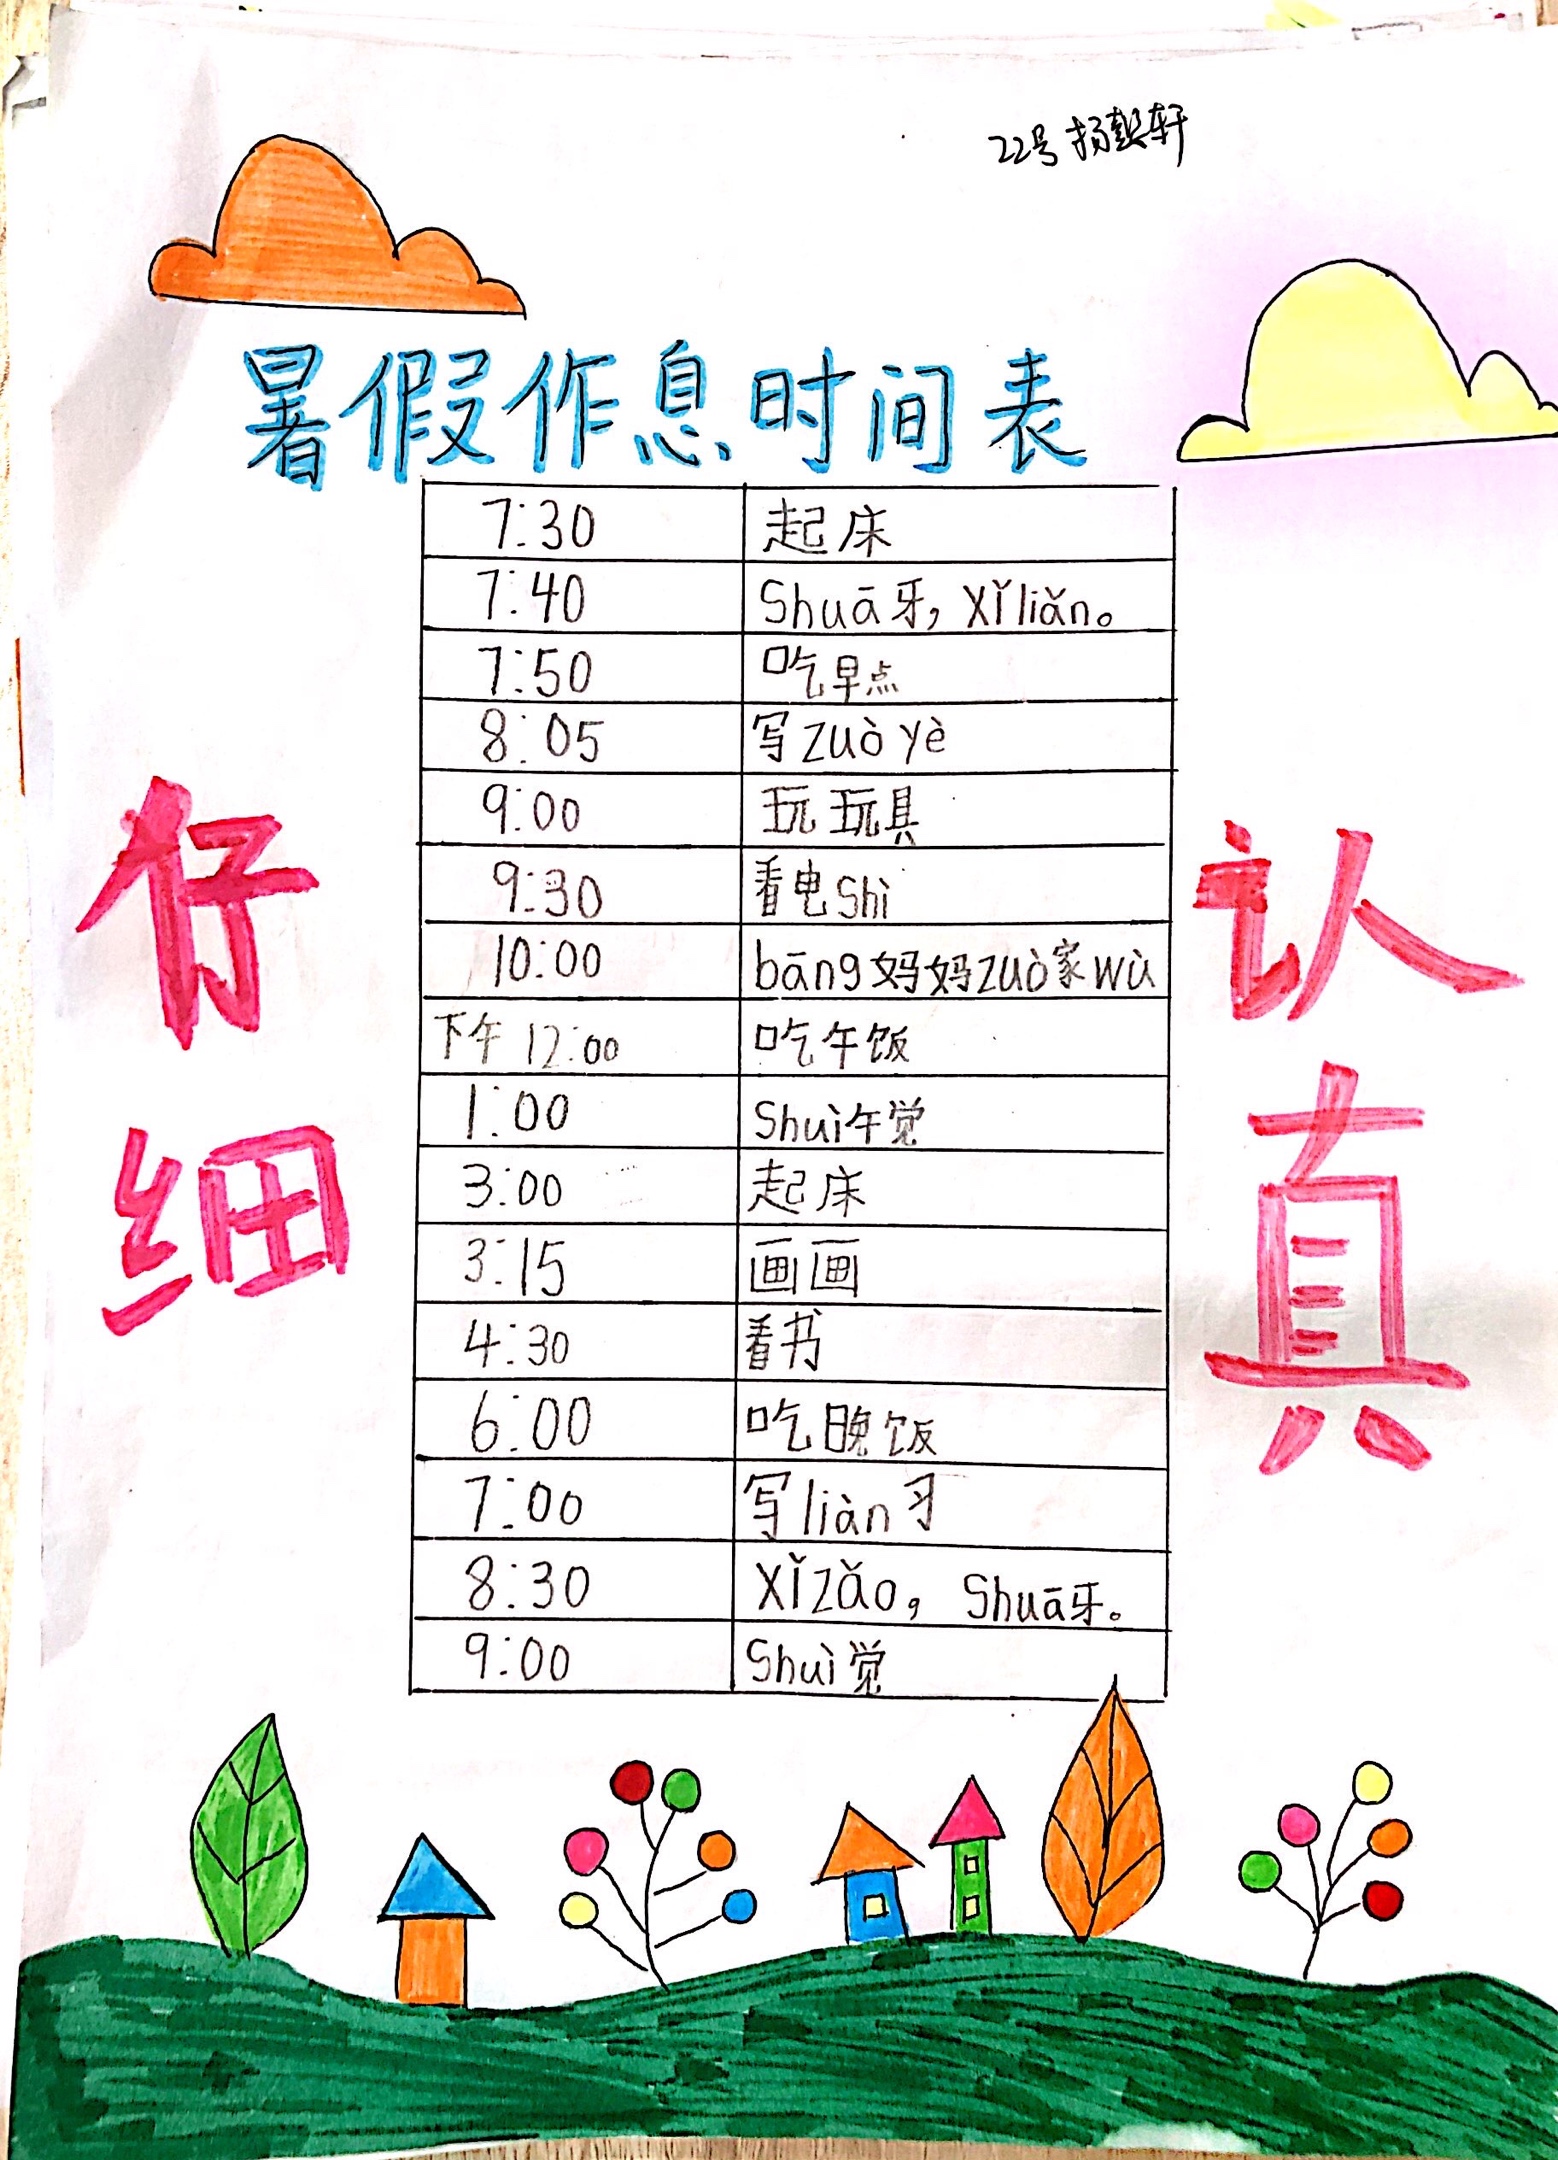 22号 杨懿轩
暑假作息时间表
7:30 起床
7:40 Shuā牙，Xǐliǎn。
7:50 吃早点
8:05 写zuòyè
9:00 玩玩具
9:30 看电Shì
10:00 bāng妈妈zuò家wù
下午 12:00 吃午饭
1:00 Shuì午觉
3:00 起床
3:15 画画
4:30 看书
6:00 吃晚饭
7:00 写liàn习
8:30 Xǐzǎo，Shuā牙。
9:00 Shuì觉
仔细
认真